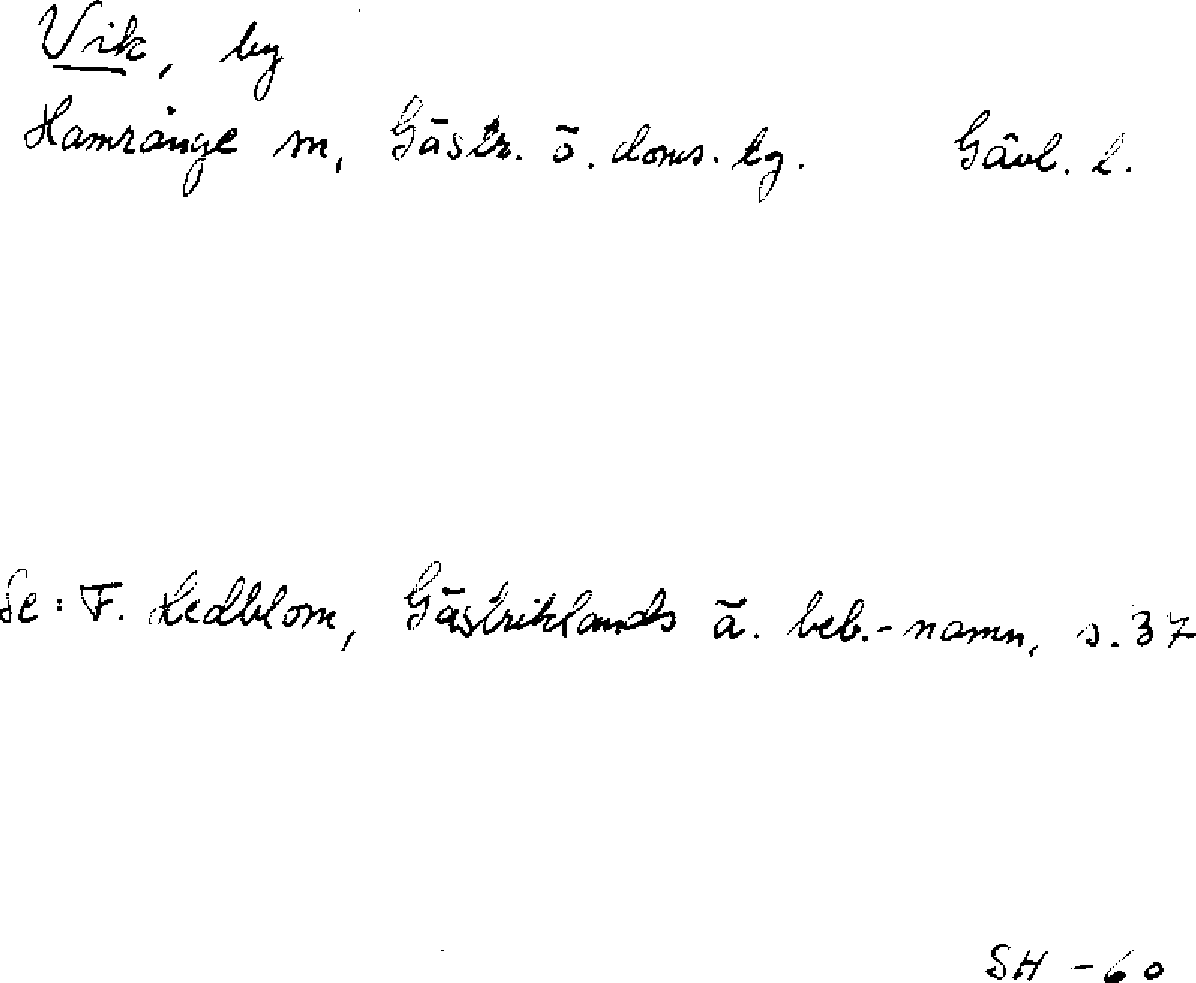 Vik, by
Hamrånge sn, Gästr. ö. doms. tg. Gävl. l.
Se: F. Hedblom, Gästriklands ä. beb.-namn, s. 37
SH -60